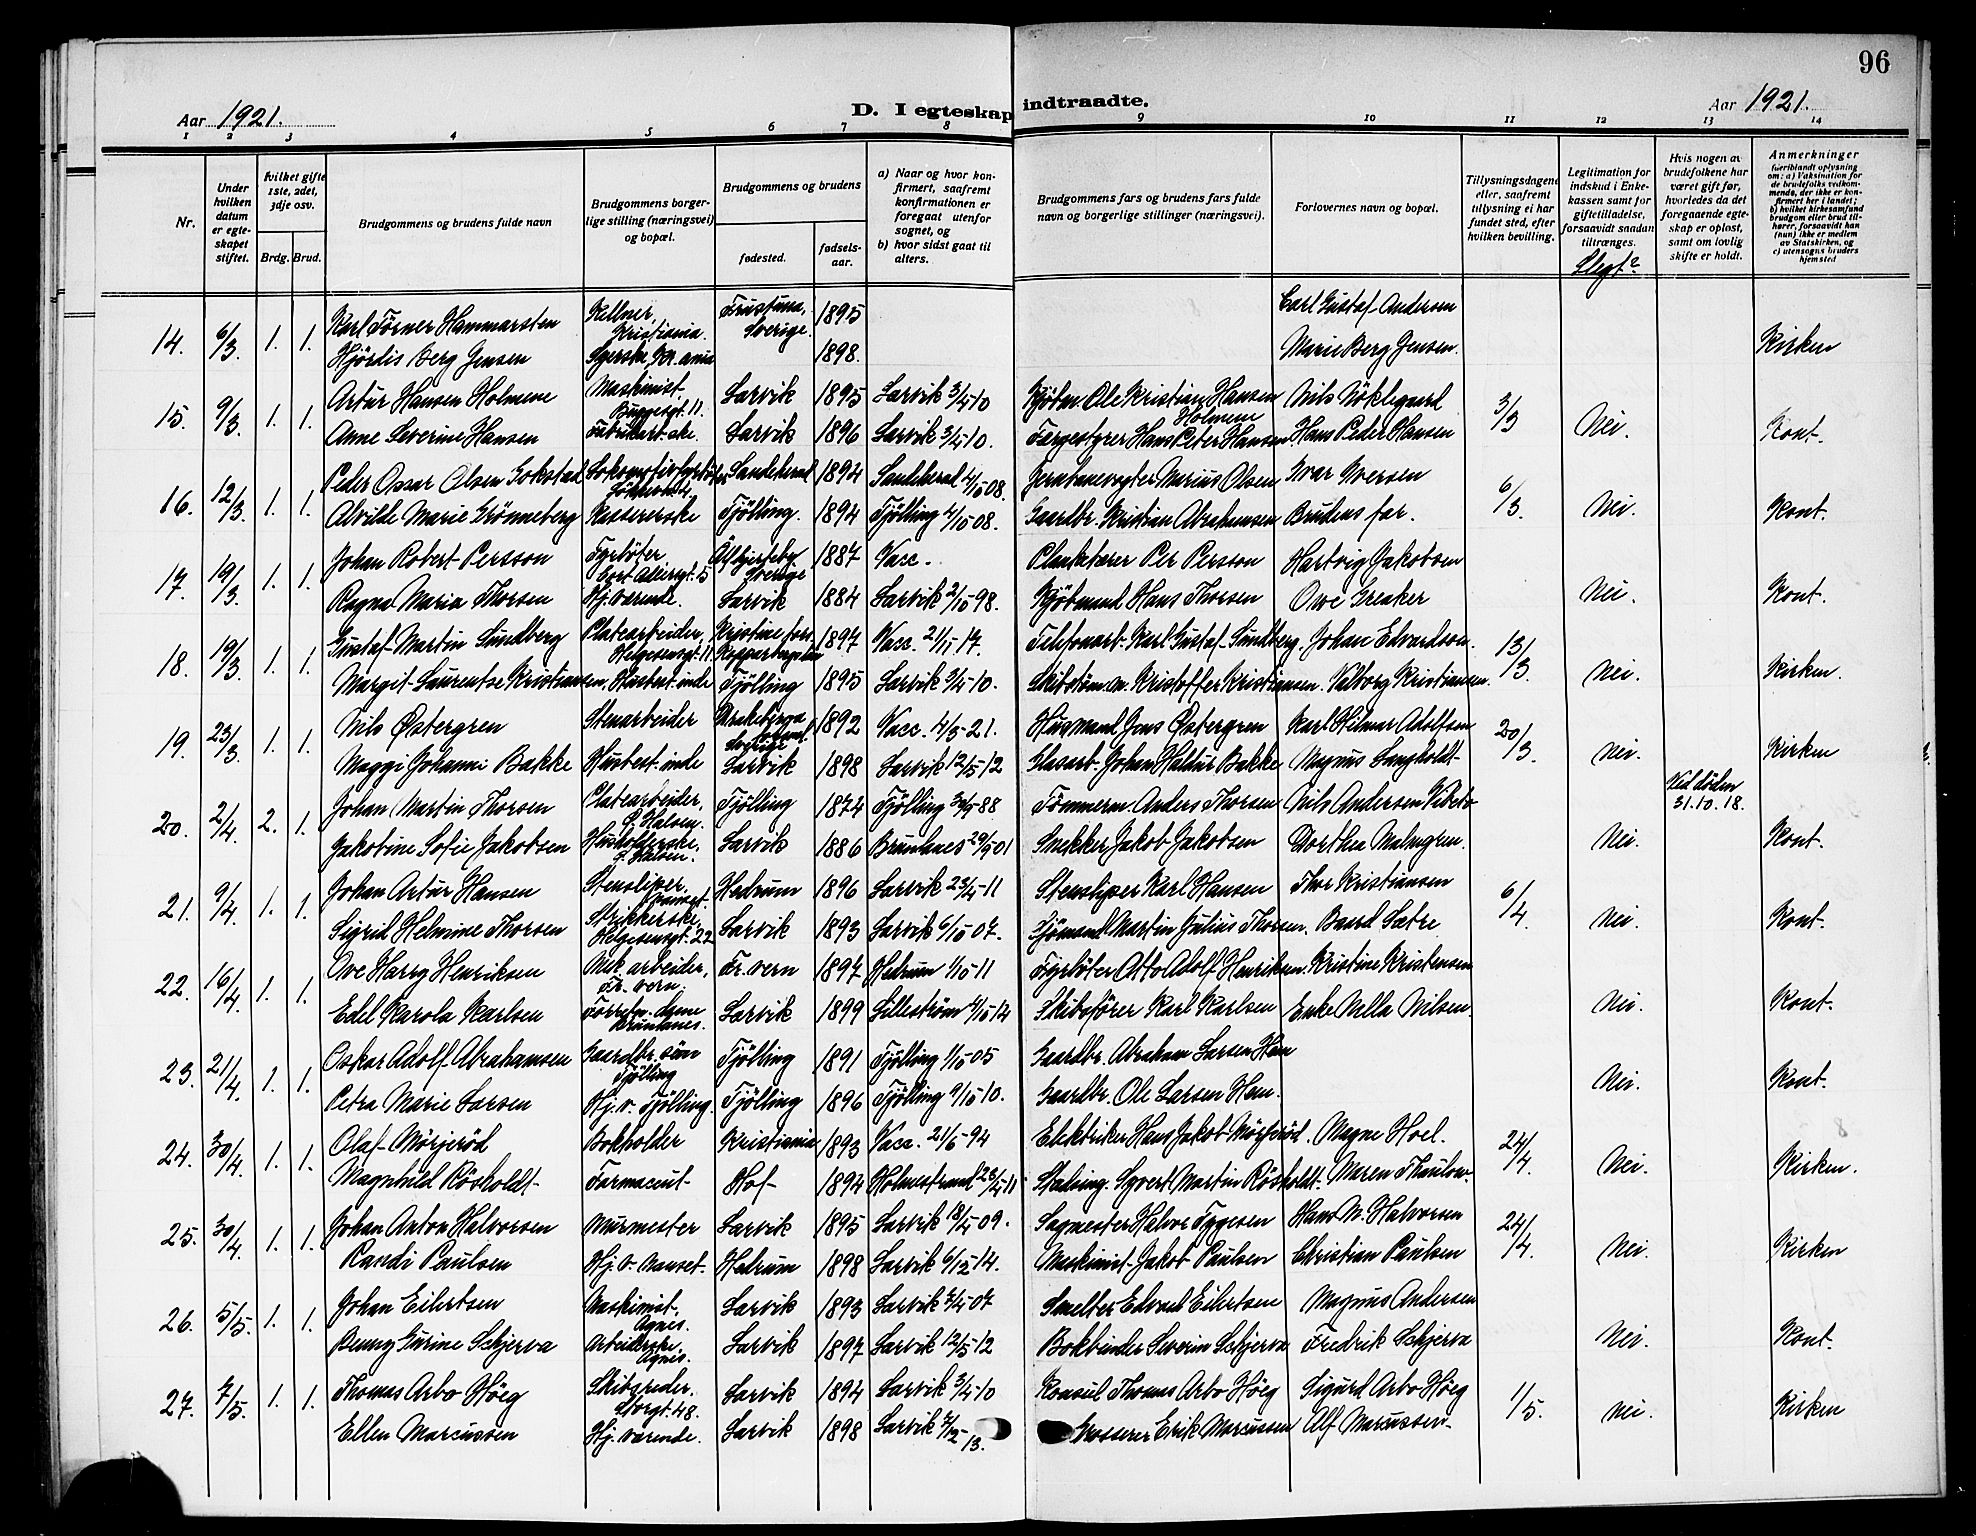 96
Aar 1921.
D. I egteskap indtraadte.
Aar 1921.
1 2 3 4 5 6 7 8 9 10 11 12 13 14
Nr.
Under hvilken datum er egteskapet stiftet.
hvilket gifte 1ste, 2det, 3dje osv.
Brdg. Brud.
Brudgommens og brudens fulde navn
Brudgommens borgerlige stilling (næringsvei) og bopæl.
Brudgommens og brudens
fødested.
fødselsaar.
a) Naar og hvor konfirmert, saafremt konfirmationen er foregaat utenfor sognet, og
b) hvor sidst gaat til alters.
Brudgommens fars og brudens fars fulde navn og borgerlige stillinger (næringsvei).
Forlovernes navn og bopæl.
Tillysningsdagene eller, saafremt tillysning ei har fundet sted, efter hvilken bevilling.
Legitimation for indskud i Enkekassen samt for giftetilladelse, forsaavidt saadan tiltrænges.
Slegt?
Hvis nogen av brudefolkene har været gift før, hvorledes da det foregaaende egteskap er opløst, samt om lovlig skifte er holdt.
Anmerkninger
hjemsted
14. 6/3 1. 1. Karl Törner Hammarsten Kellner, Kristiania. Frustuna, Sverige. 1895 Carl Gustaf Andersen
Hjördis Berg Jensen 1898. Marie Berg Jensen. Kirken
15. 9/3 1. 1. Artur Hansen Holmene Maskinist. Byggesgt. 11. Larvik 1895 Larvik 3/4-10 Kjøbm. Ole Kristian Hansen Holmene Nils Nöklegaard 3/3
Anne Severine Hansen Fabrikarb.ske. Larvik 1896 Larvik 3/4-10. Færgestyrer Hans Peter Hansen Hans Peder Hansen Nei. Kont.
16. 12/3. 1. 1. Peder Oscar Olsen Gokstad Lokomotivfyrböter Sandeherad 1894 Sandeherad 4/10 08. Jernbanevogter Marius Olsen Ivar Iversen 6/3.
Alvilde Marie Grönneberg Kassererske Tjölling. 1894 Tjölling 4/10 08. Gaardbr. Kristian Abrahamsen Brudens far. Nei. Kont.
17. 19/3. 1. 1. Johan Robert Persson Fyrböter Sverige 1887 Vacc. Plankebærer Per Persson Hartvig Jakobsen
Ragna Maria Thorsen Hj. værende. Larvik 1884 Larvik 2/10-98. Kjöbmand Hans Thorsen Ove Greaker Nei. Kont.
18. 19/3. 1. 1. Gustaf Martin Sundberg Platearbeider, Helgesensgt. 11 1897 Vacc. 21/11 17. Telefonarb. Karl Gustaf Sundberg. Johan Edvardson. 13/3.
Margit Laurentse Kristiansen. Husbest.inde Tjölling 1895 Larvik 3/4-10. Skibstöm.m. Kristoffer Kristiansen. Valborg Kristiansen. Nei. Kirken.
19. 23/3. 1. 1. Nils Østergren Stenarbeider Sverige 1892 Vacc. 4/3-21. Husmand Jöns Østergren Karl Hilmar Adolfsen 20/3.
Maggi Johanne Bakke Husbest.inde Larvik 1898 Larvik 12/5-12 Glasarb. Johan Haldur Bakke Magnus Langholdt Nei. Kirken
20. 2/4. 2. 1. Johan Martin Thorsen Platearbeider, Ö. Halsen. Tjölling 1874 Tjölling 30/9-88 Tömmerm. Anders Thorsen Nils Andersen Vibeto Ved döden 31.10.18.
Jakobine Sofie Jakobsen Husholderske, Ö. Halsen. Larvik 1886 Brunlanes 29/9 01 Snekker Jakob Jakobsen Dorthea Malmgren. Nei. Kont.
21. 9/4. 1. 1. Johan Artur Hansen Stensliper, Hedrum 1896 Larvik 23/4-11 Stensliper Karl Hansen Thor Kristiansen 6/4.
Sigrid Helmine Thorsen Strikkerske, Helgesensgt. 22 Larvik 1893 Larvik 6/10 07. Sjömand Martin Julius Thorsen. Baard Sætre Nei. Kont.
22. 16/4. 1. 1. Ove Harry Henriksen Mek. arbeider, Fr. vern. Fr. vern 1897 Hedrum 1/10-11 Fyrböter Otto Adolf Henriksen. Kristine Kristensen
Edel Karola Karlsen Forretn. dame Brunlanes. Larvik 1899 Lilleström 4/10-14 Skibsförer Karl Karlsen Enke Nella Nilsen. Nei. Kont.
23. 21/4. 1. 1. Oskar Adolf Abrahamsen Gaardbr. sön Tjölling Tjölling 1891 Tjölling 1/10 05 Gaardbr. Abraham Larsen Hem
Petra Marie Larsen Hj. v. Tjölling. Tjölling 1896 Tjölling 9/10-10. Gaardbr. Ole Larsen Hem. Nei. Kont.
24. 30/4. 1. 1. Olaf Mörjeröd Bokholder Kristiania 1893 Vacc. 21/6-94 Elektriker Hans Jakob Mörjeröd. Magne Hoel. 24/4.
Magnhild Rösholdt Farmaceut Hof 1894 Holmestrand 23/4-11 Sigvert Martin Rösholdt. Maren Thaulow. Nei. Kirken.
25. 30/4. 1. 1. Johan Anton Halvorsen Murmester Larvik 1895 Larvik 18/4-09. Sagmester Halvor Tygesen Hans M. Halvorsen 24/4.
Randi Paulsen Hj. v. Nanset. Hedrum 1898 Larvik 6/12-14. Maskinist Jakob Paulsen Christian Paulsen Nei. Kirken
26. 5/5. 1. 1. Johan Eilertsen Maskinist, Agnes. Larvik 1893 Larvik 7/4-07 Smelter Edvard Eilertsen Magnus Andersen
Benny Gurine Schjerva Arbeiderske, Agnes. Larvik 1897 Larvik 12/5-12 Bokbinder Severin Schjerva Fredrik Schjerva Nei. Kont.
27. 7/5. 1. 1. Thomas Arbo Höeg Skibsreder, Storgt. 48. Larvik 1894 Larvik 3/4-10 Konsul Thomas Arbo Höeg Sigurd Arbo Höeg 1/5.
Ellen Marcussen Hj. værende. Larvik 1898 Larvik -13. Grosserer Erik Marcussen Alf Marcussen Nei. Kirken